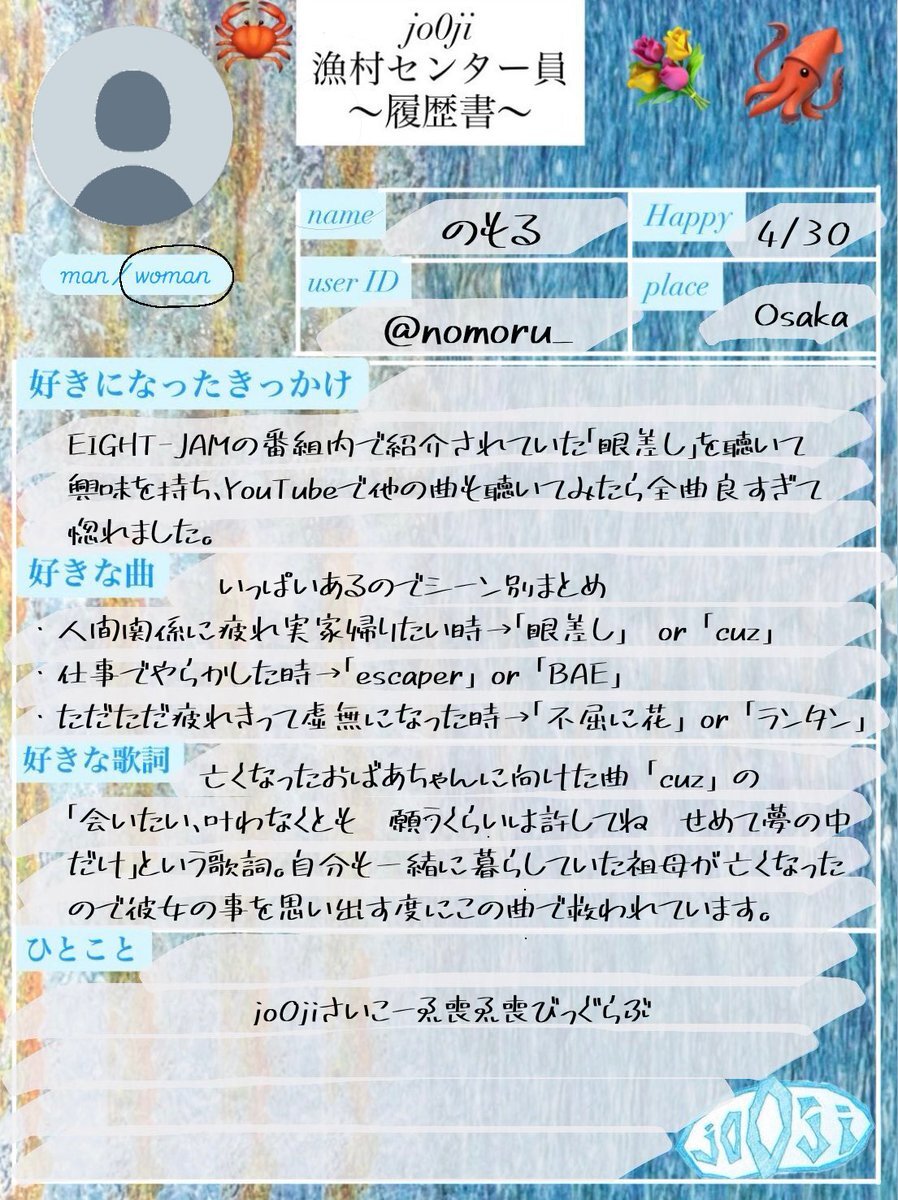 jo0ji
漁村センター員
〜履歴書〜
man / woman
name
のもる
Happy
4/30
user ID
@nomoru_
place
Osaka
好きになったきっかけ
EIGHT-JAMの番組内で紹介されていた「眼差し」を聴いて
興味を持ち、YouTubeで他の曲も聴いてみたら全曲良すぎて
惚れました。
好きな曲
いっぱいあるのでシーン別まとめ
・人間関係に疲れ実家帰りたい時→「眼差し」 or「cuz」
・仕事でやらかした時→「escaper」or「BAE」
・ただただ疲れきって虚無になった時→「不屈に花」or「ランタン」
好きな歌詞
亡くなったおばあちゃんに向けた曲「cuz」の
「会いたい、叶わなくとも 願うくらいは許してね せめて夢の中
だけ」という歌詞。自分も一緒に暮らしていた祖母が亡くなった
ので彼女の事を思い出す度にこの曲で救われています。
ひとこと
jo0jiさいこーゑ喪ゑ喪びっぐらぶ
jo0ji